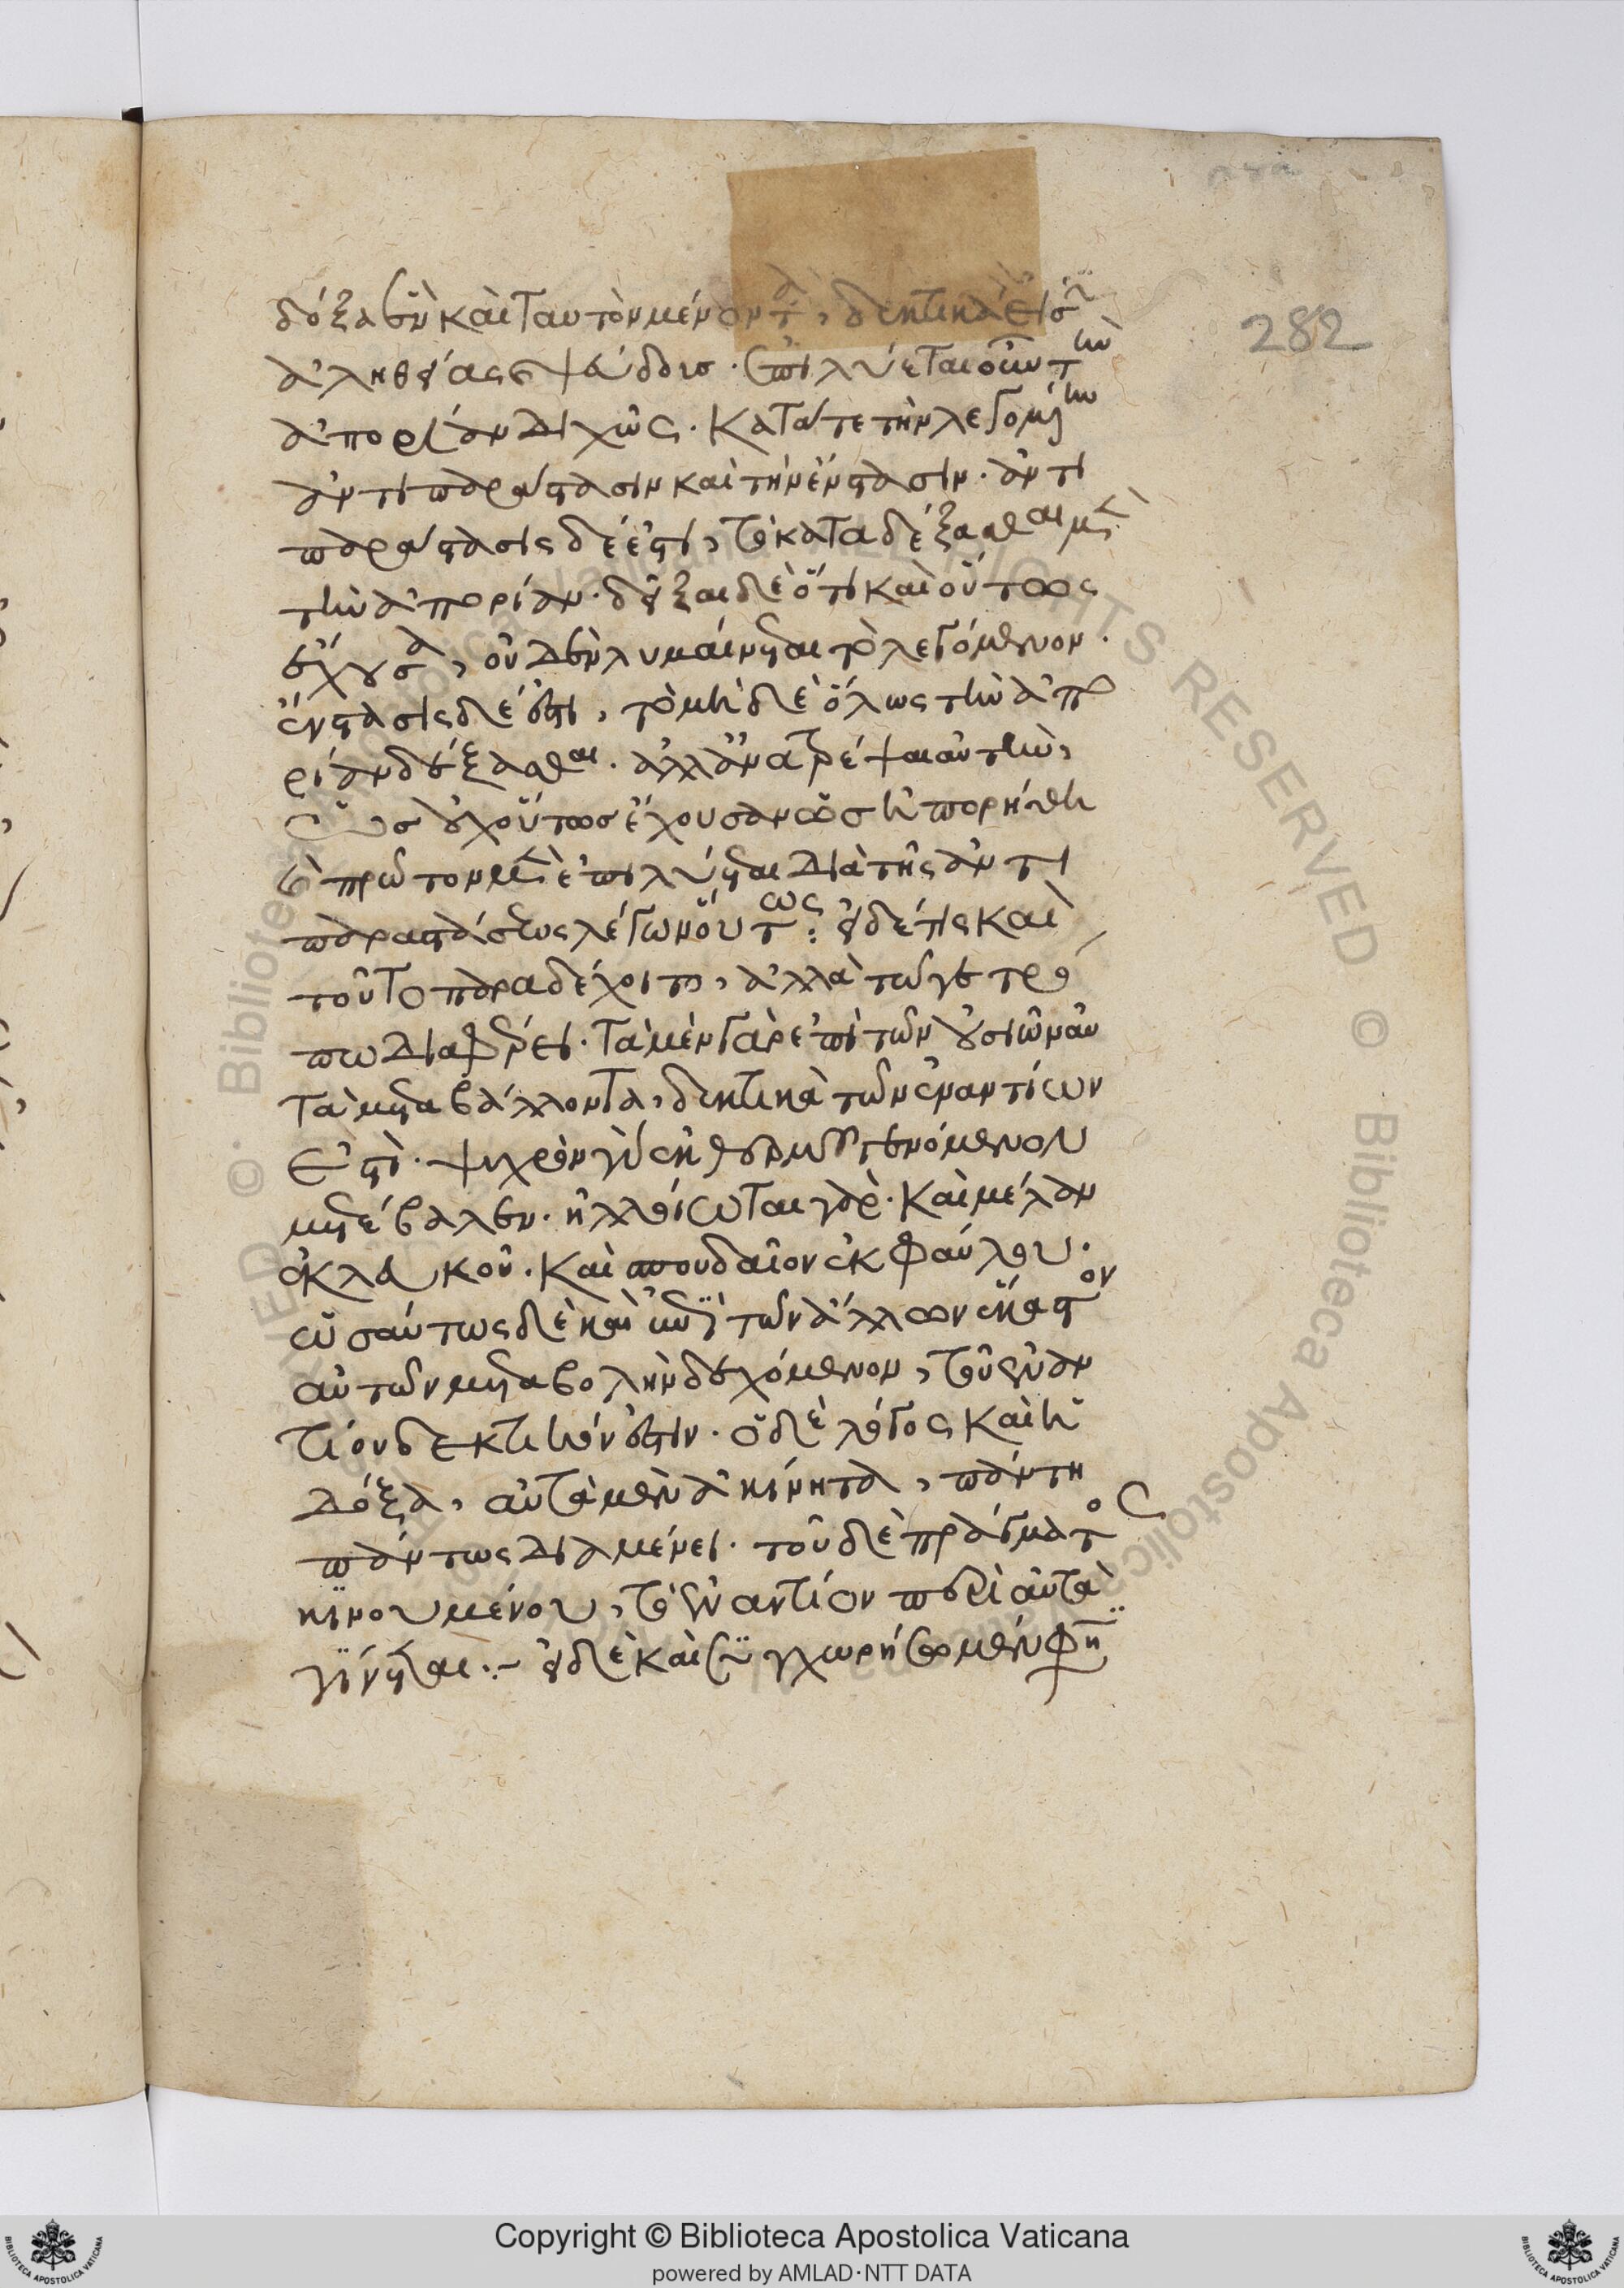 δόξα ἓν καὶ ταυτὸν μένοντα, δεκτικὰ εἰσὶν
ἀληθείας καὶ ψεύδους. ἐπιλύεται οὖν τὴν
ἀπορίαν διχῶς. κατά τε τὴν λεγομένην
ἀντιπαράστασιν καὶ τὴν ἔνστασιν. ἀντι
παράστασις δέ ἐστι, τὸ καταδέξασθαι μὲν
τὴν ἀπορίαν. δεῖξαι δὲ ὅτι καὶ οὕτως
ἔχουσα, οὐδὲν λυμαίνεται τὸ λεγόμενον.
ἔνστασις δέ ἐστι, τὸ μὴ δὲ ὅλως τὴν ἀπο
ρίαν δέξασθαι. ἀλλ' ἀνατρέψαι αὐτὴν,
ὡς οὐχ οὕτως ἔχουσαν ὡς ἠπορήθη
καὶ πρῶτον μὲν ἐπιλύεται διὰ τῆς ἀντι
παραστάσεως λέγων οὕτως: εἰ δέ τις καὶ
τοῦτο παραδέχοιτο, ἀλλὰ τῷ γε τρό
πω διαφέρει. τὰ μὲν γὰρ ἐπὶ τῶν οὐσιῶν αὐ
τὰ μεταβάλλοντα, δεκτικὰ τῶν ἐναντίων
ἐστί. ψυχρὸν γὰρ ἐκ θερμοῦ γενόμενον
μετέβαλεν. ἠλλοίωται γάρ. καὶ μέλαν
ἐκ λευκοῦ. καὶ σπουδαῖον ἐκ φαύλου.
ὡσαύτως δὲ καὶ ἐπὶ τῶν ἄλλων ἕκαστον
αὐτῶν μεταβολὴν δεχόμενον, τοῦ ἐναν
τίου δεκτικόν ἐστιν. ὁ δὲ λόγος καὶ ἡ
δόξα, αὐτὰ μὲν ἀκίνητα, πάντη
πάντως διαμένει. τοῦ δὲ πράγματος
κινουμένου, τὸ ἐναντίον περὶ αὐτὰ
γίνεται.:~ εἰ δὲ καὶ συγχωρήσομεν φησὶ
282
Copyright © Biblioteca Apostolica Vaticana
powered by AMLAD·NTT DATA